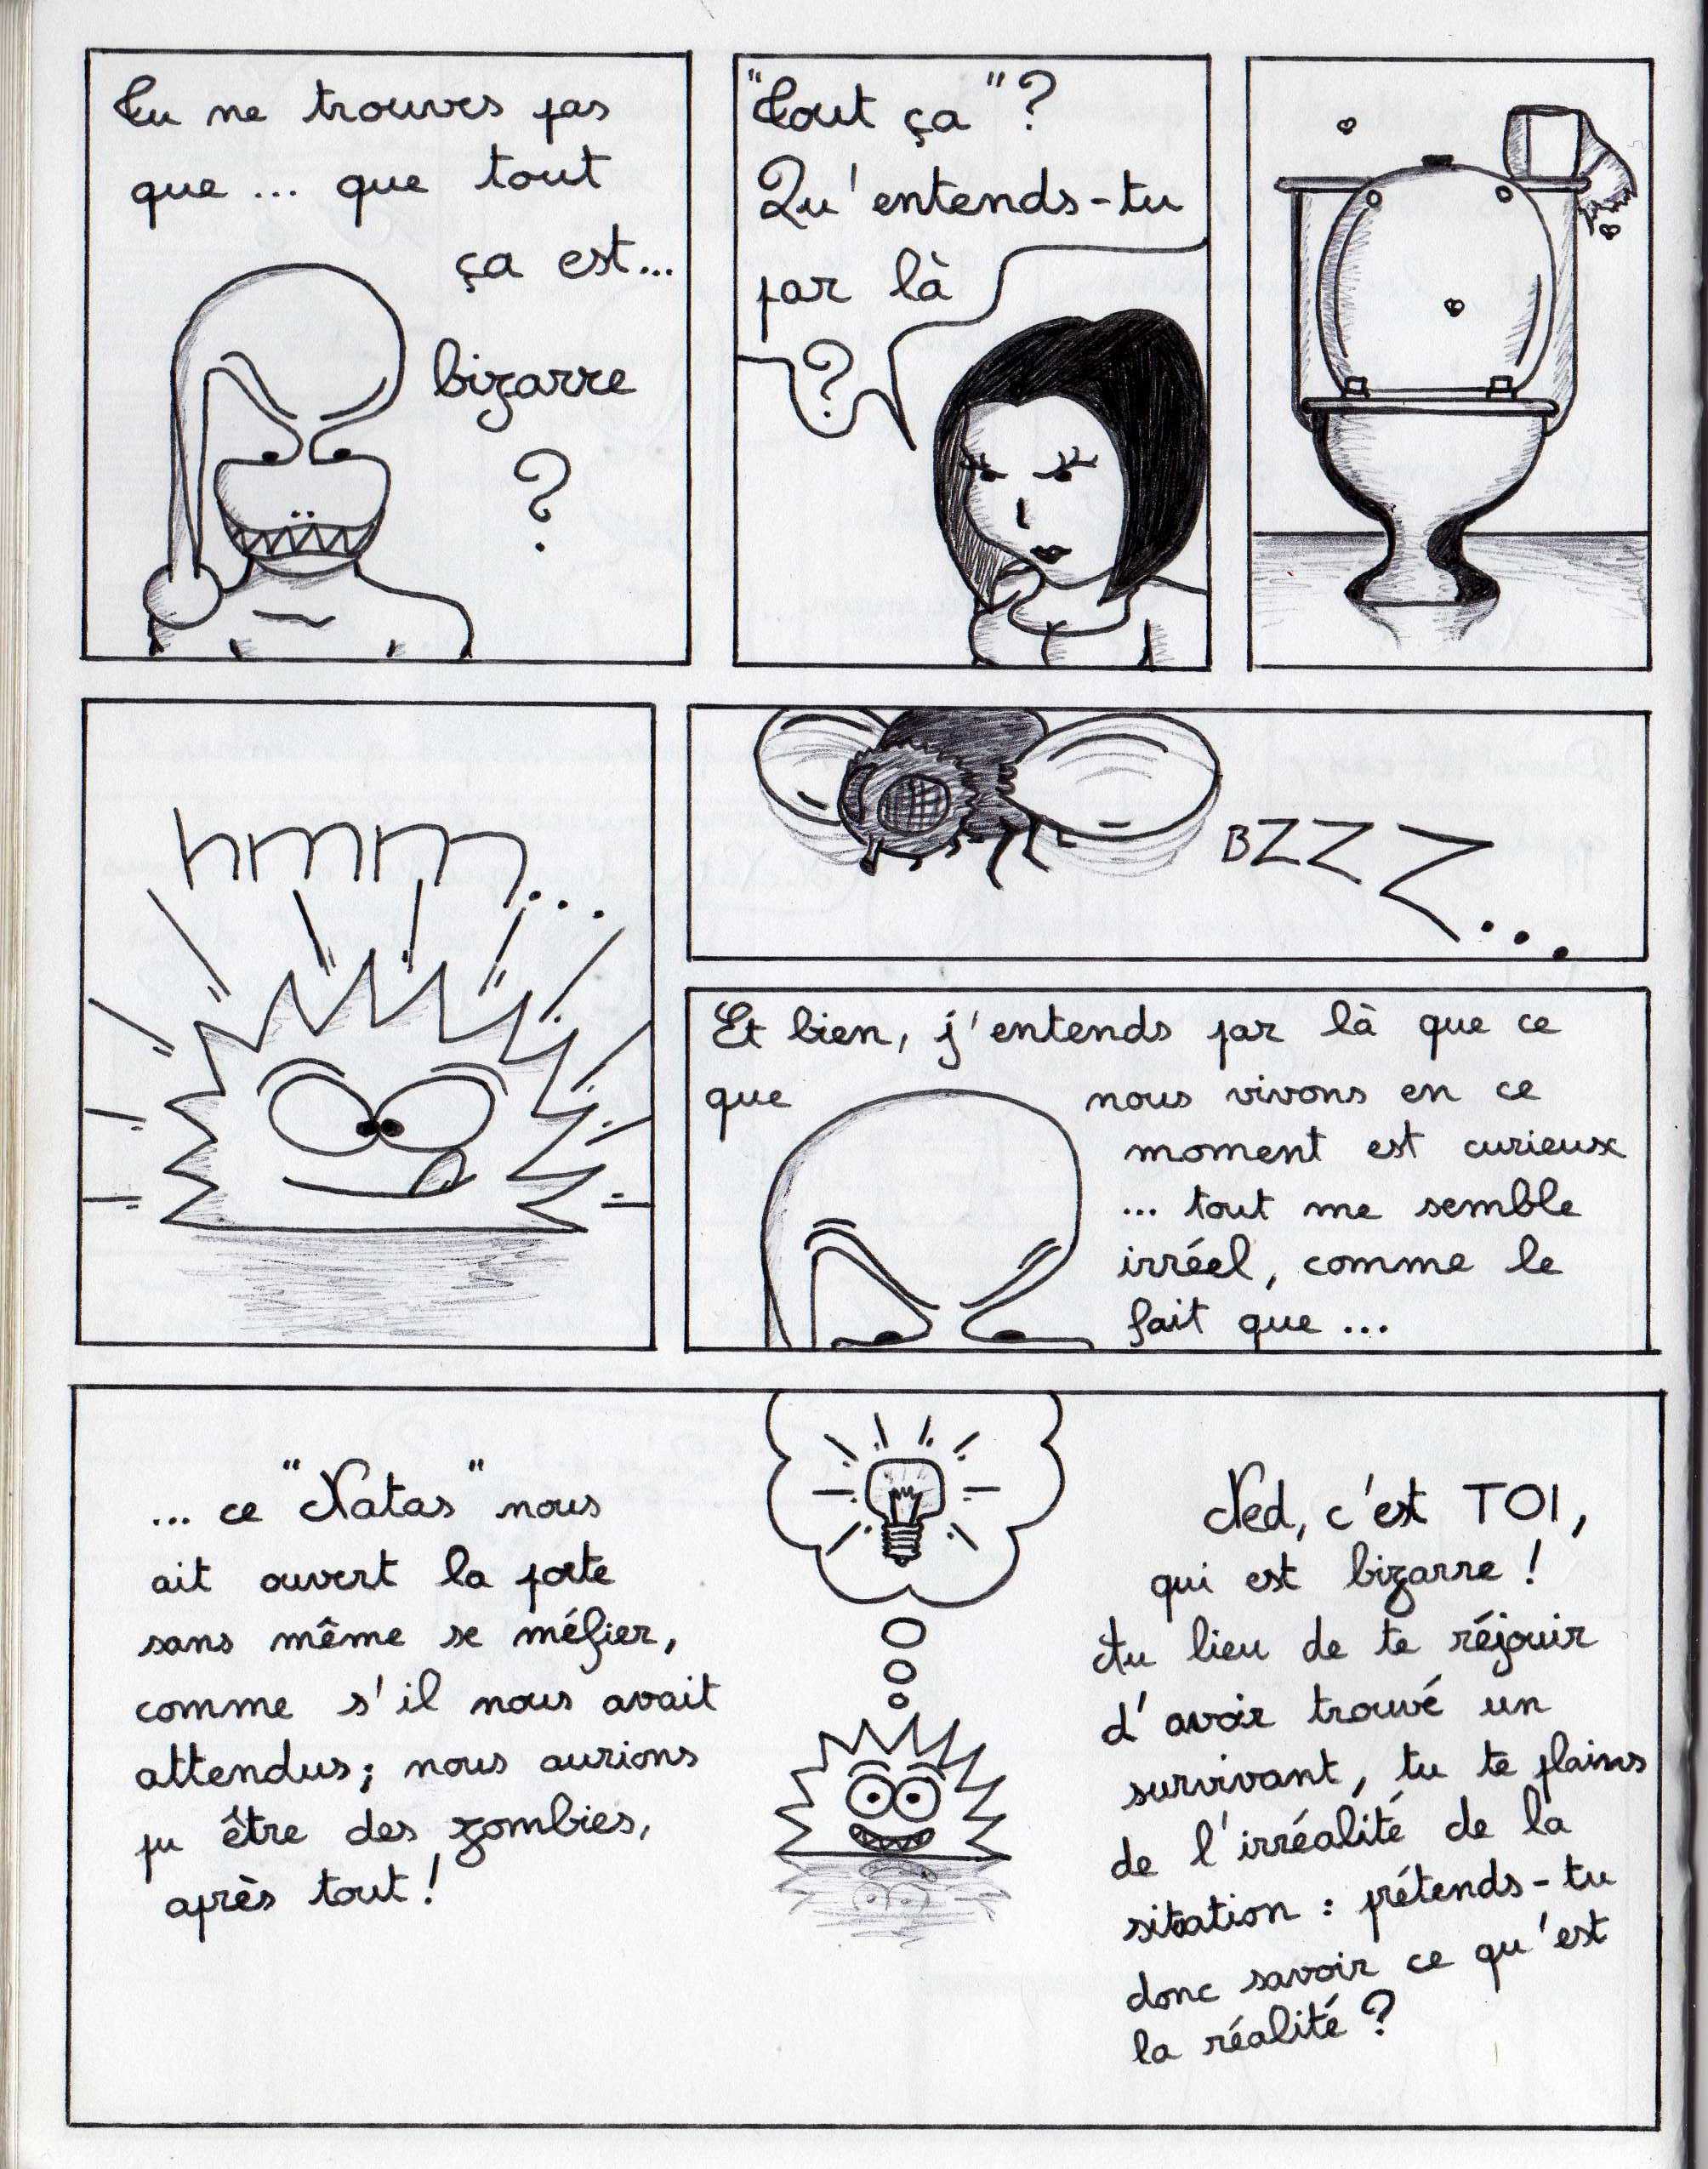 Tu ne trouves pas
que ... que tout
ça est...
bizarre
?
"Tout ça"?
Qu'entends-tu
par là
?
hmm...
BZZZ...
Et bien, j'entends par là que ce
que nous vivons en ce
moment est curieux
... tout me semble
irréel, comme le
fait que ...
... ce "Natas" nous
ait ouvert la porte
sans même se méfier,
comme s'il nous avait
attendus; nous aurions
pu être des zombies,
après tout!
Ned, c'est TOI,
qui est bizarre!
Au lieu de te réjouir
d'avoir trouvé un
survivant, tu te plains
de l'irréalité de la
sitation : prétends-tu
donc savoir ce qu'est
la réalité?